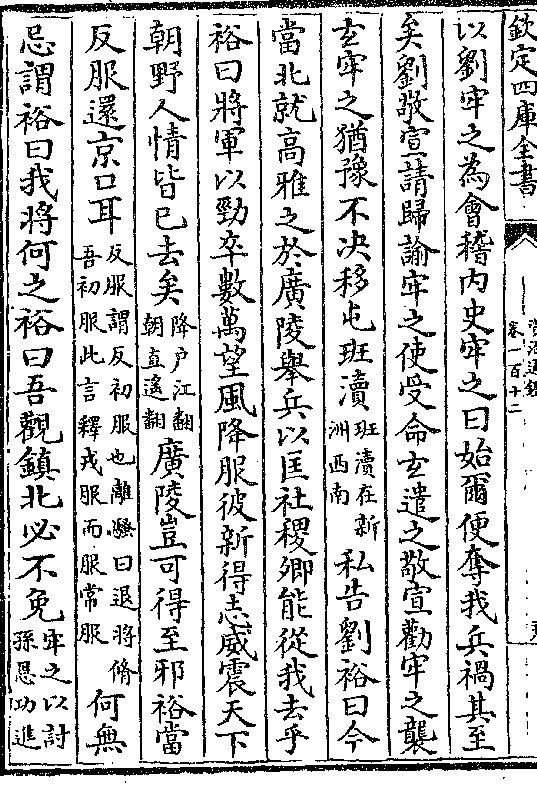 欽定四庫全書
資治通鑑
卷一百十二
以劉牢之為會稽內史牢之曰始爾便奪我兵禍其至
矣劉敬宣請歸諭牢之使受命玄遣之敬宣勸牢之襲
玄牢之猶豫不決移屯班瀆班瀆在新洲西南私告劉裕曰今
當北就高雅之於廣陵舉兵以匡社稷卿能從我去乎
裕曰將軍以勁卒數萬望風降服彼新得志威震天下
朝野人情皆已去矣降户江翻朝直遙翻廣陵豈可得至邪裕當
反服還京口耳反服謂反初服也離騷曰退將脩吾初服此言釋戎服而服常服何無
忌謂裕曰我將何之裕曰吾觀鎮北必不免牢之以討孫恩功進